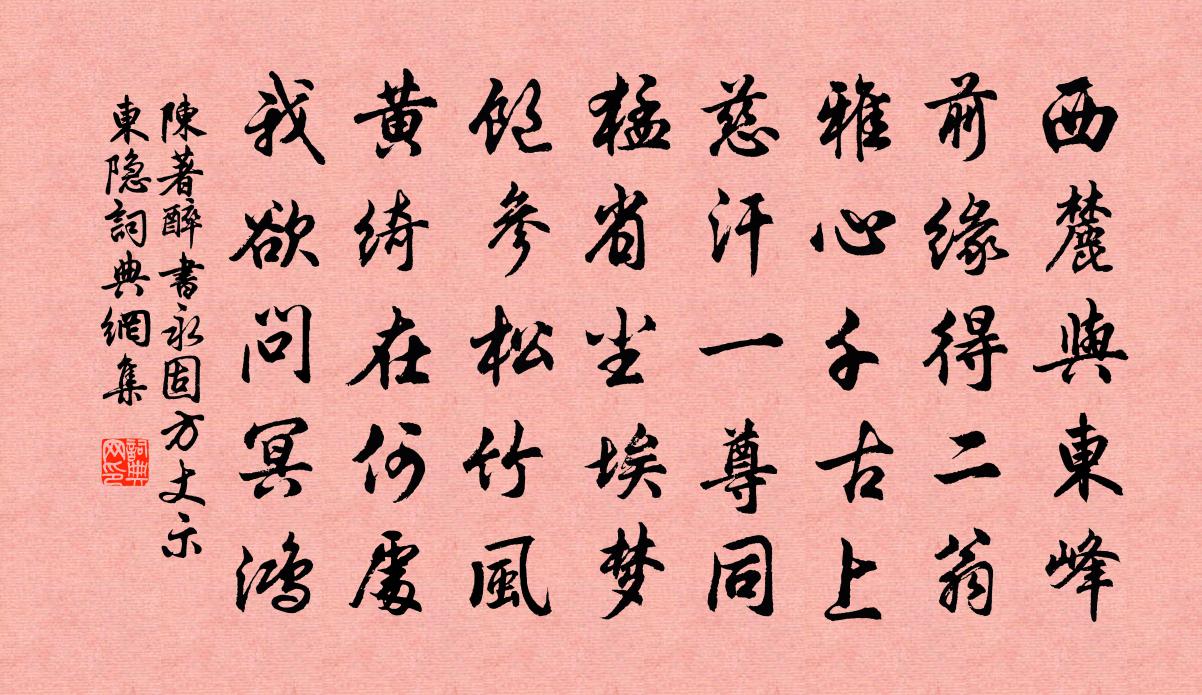 西麓與東峰
前缘得二翁
雅心千古上
慈汗一尊同
猛省尘埃梦
飽參松竹風
黄绮在何處
我欲问冥鸿
陳著醉書永固方丈示
東隐詞典網集
詞典网印